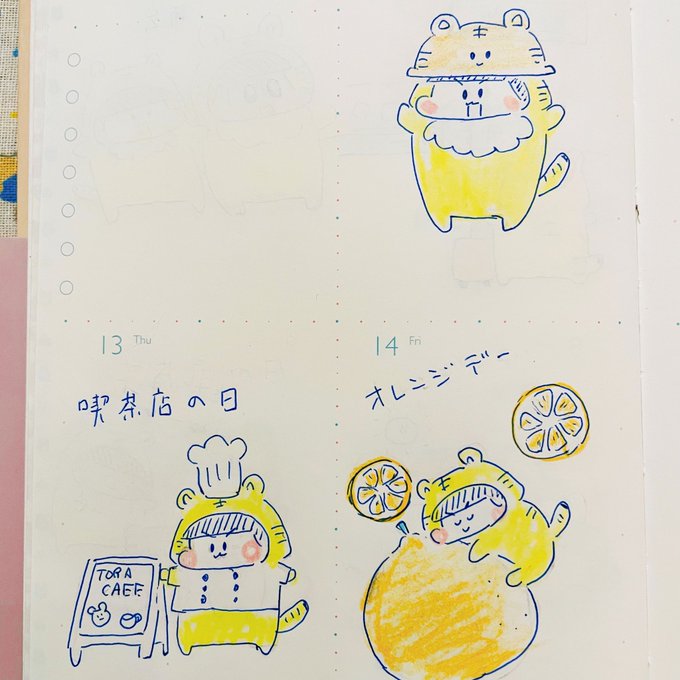 13 Thu
喫茶店の日
TORA
CAFE
14 Fri
オレンジデー